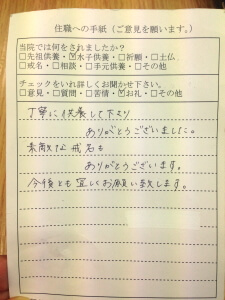 住職への手紙(ご意見を願います。)
当院では何をされましたか?
□先祖供養・☑水子供養・□祈願・□土仏
□戒名・□相談・□手元供養・□その他
チェックをいれ詳しくお聞かせ下さい。
□意見・□質問・□苦情・☑お礼・□その他
丁寧に供養して下さり
ありがとうございました。
素敵な戒名も
ありがとうございます。
今後とも宜しくお願い致します。